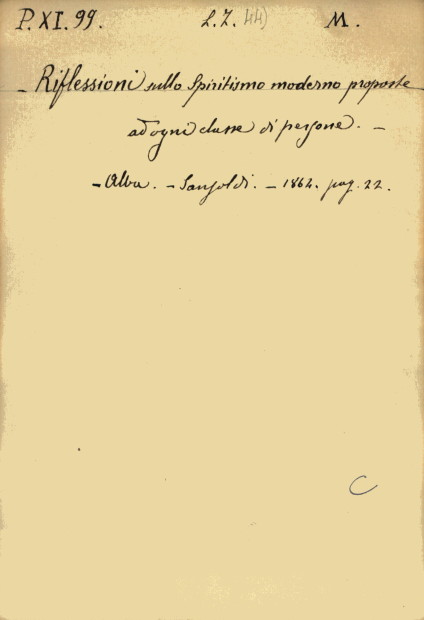 P. XI. 99. L. Z. 44) M.
- Riflessioni sullo Spiritismo moderno proposte
ad ogni classe di persone. -
- Alba. - Sansoldi. - 1864. pag. 22.
C